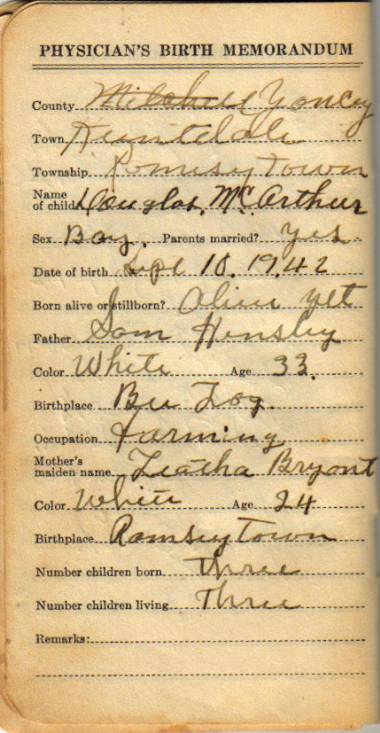 PHYSICIAN'S BIRTH MEMORANDUM
County Mitchell Yancey
Town Huntdale
Township Ramseytown
Name of child Douglas. McArthur
Sex Boy. Parents married? yes
Date of birth Sept 10. 1942
Born alive or stillborn? Alive yet
Father Sam Hensley
Color White Age 33.
Birthplace Bee Log.
Occupation Farming
Mother's maiden name Leatha Bryant
Color White Age 24
Birthplace Ramseytown
Number children born Three
Number children living Three
Remarks: